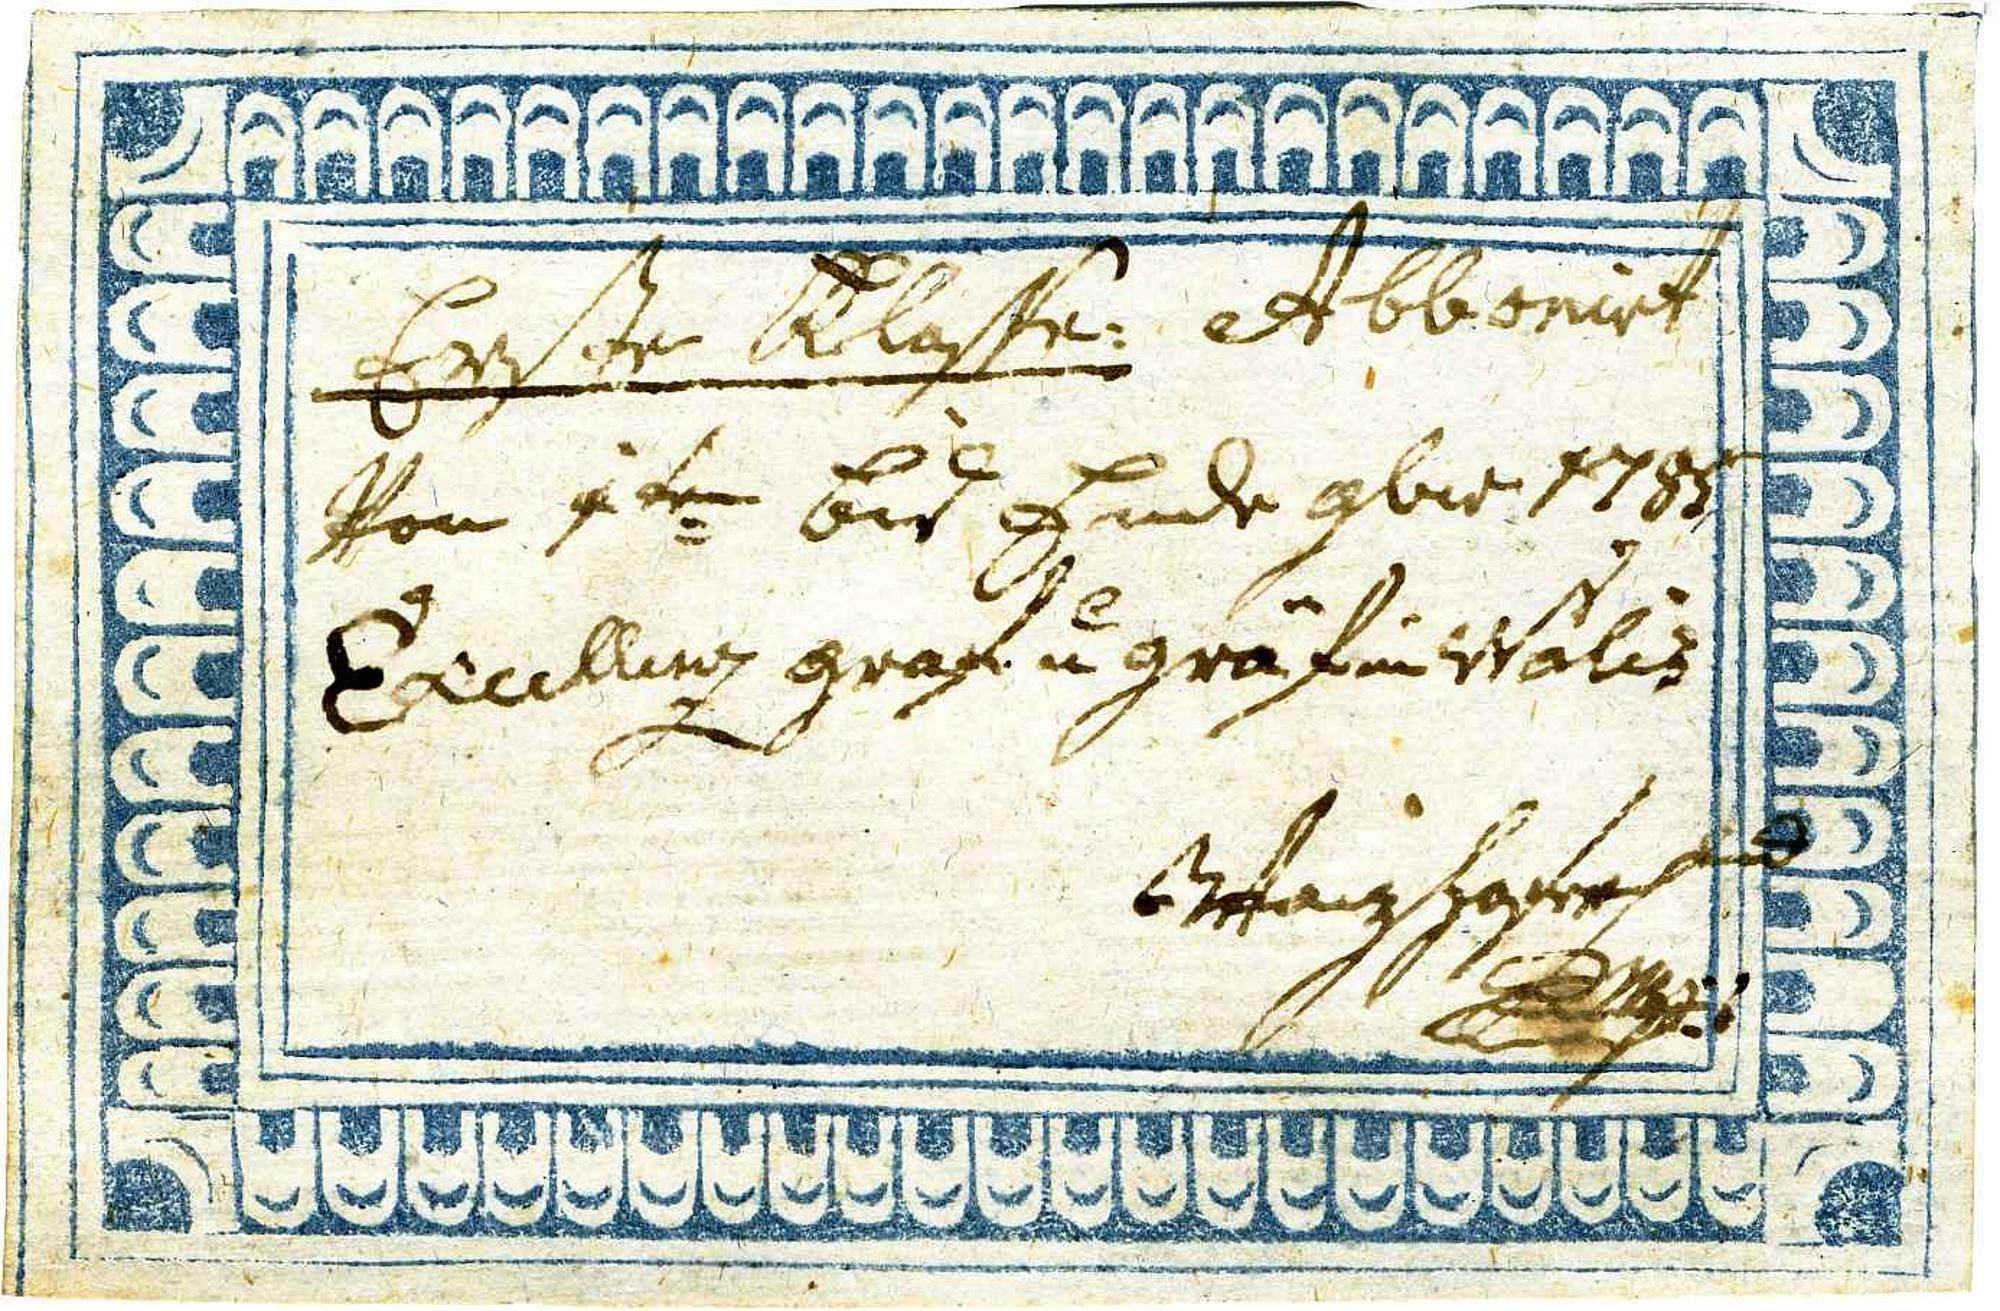 Erste Klasse: Abbonirt
Von 1ten bis Ende 9ber 1785
Excellenz graf u gräfin Wallis